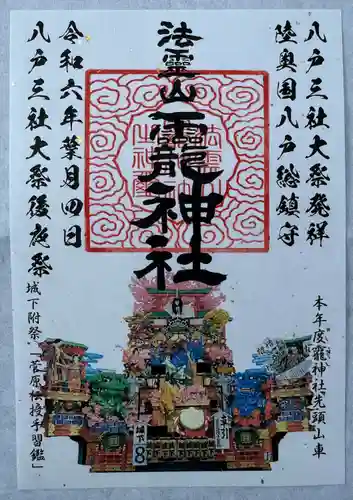 八戸三社大祭発祥
陸奥国八戸総鎮守
法霊山龗神社
令和六年葉月四日
八戸三社大祭後夜祭
本年度龗神社先頭山車
城下附祭「菅原伝授手習鑑」
城下
8